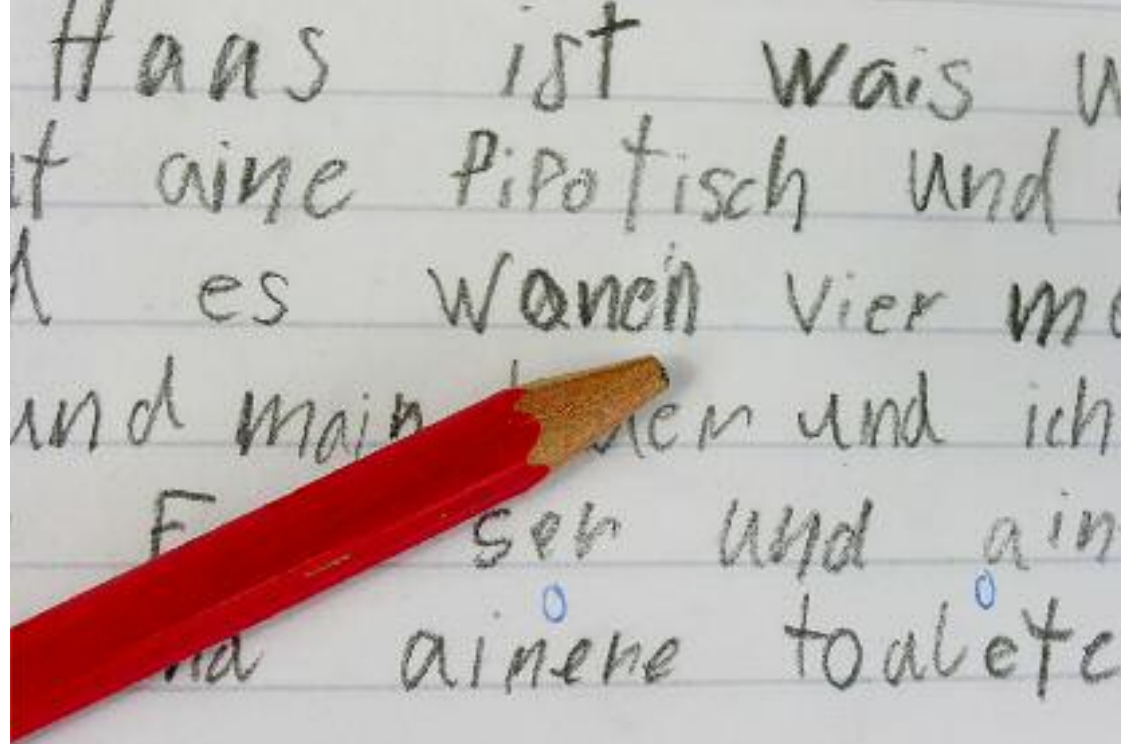 Haas ist Wais
aine Pipotisch und
es wonen vier
und main und ich
sen und ain
ainene toalete